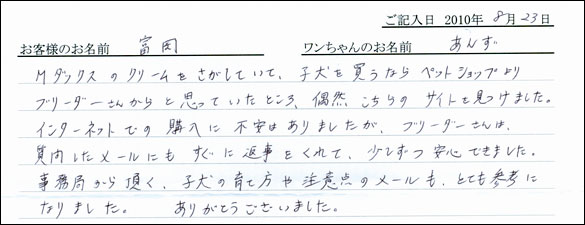 ご記入日 2010年 8月23日
お客様のお名前 富岡 ワンちゃんのお名前 あんず
Mダックスのクリームをさがしていて、子犬を買うならペットショップより
ブリーダーさんからと思っていたところ、偶然こちらのサイトを見つけました。
インターネットでの購入に不安はありましたが、ブリーダーさんは、
質問したメールにもすぐに返事をくれて、少しずつ安心できました。
事務局から頂く、子犬の育て方や注意点のメールも、とても参考に
なりました。 ありがとうございました。